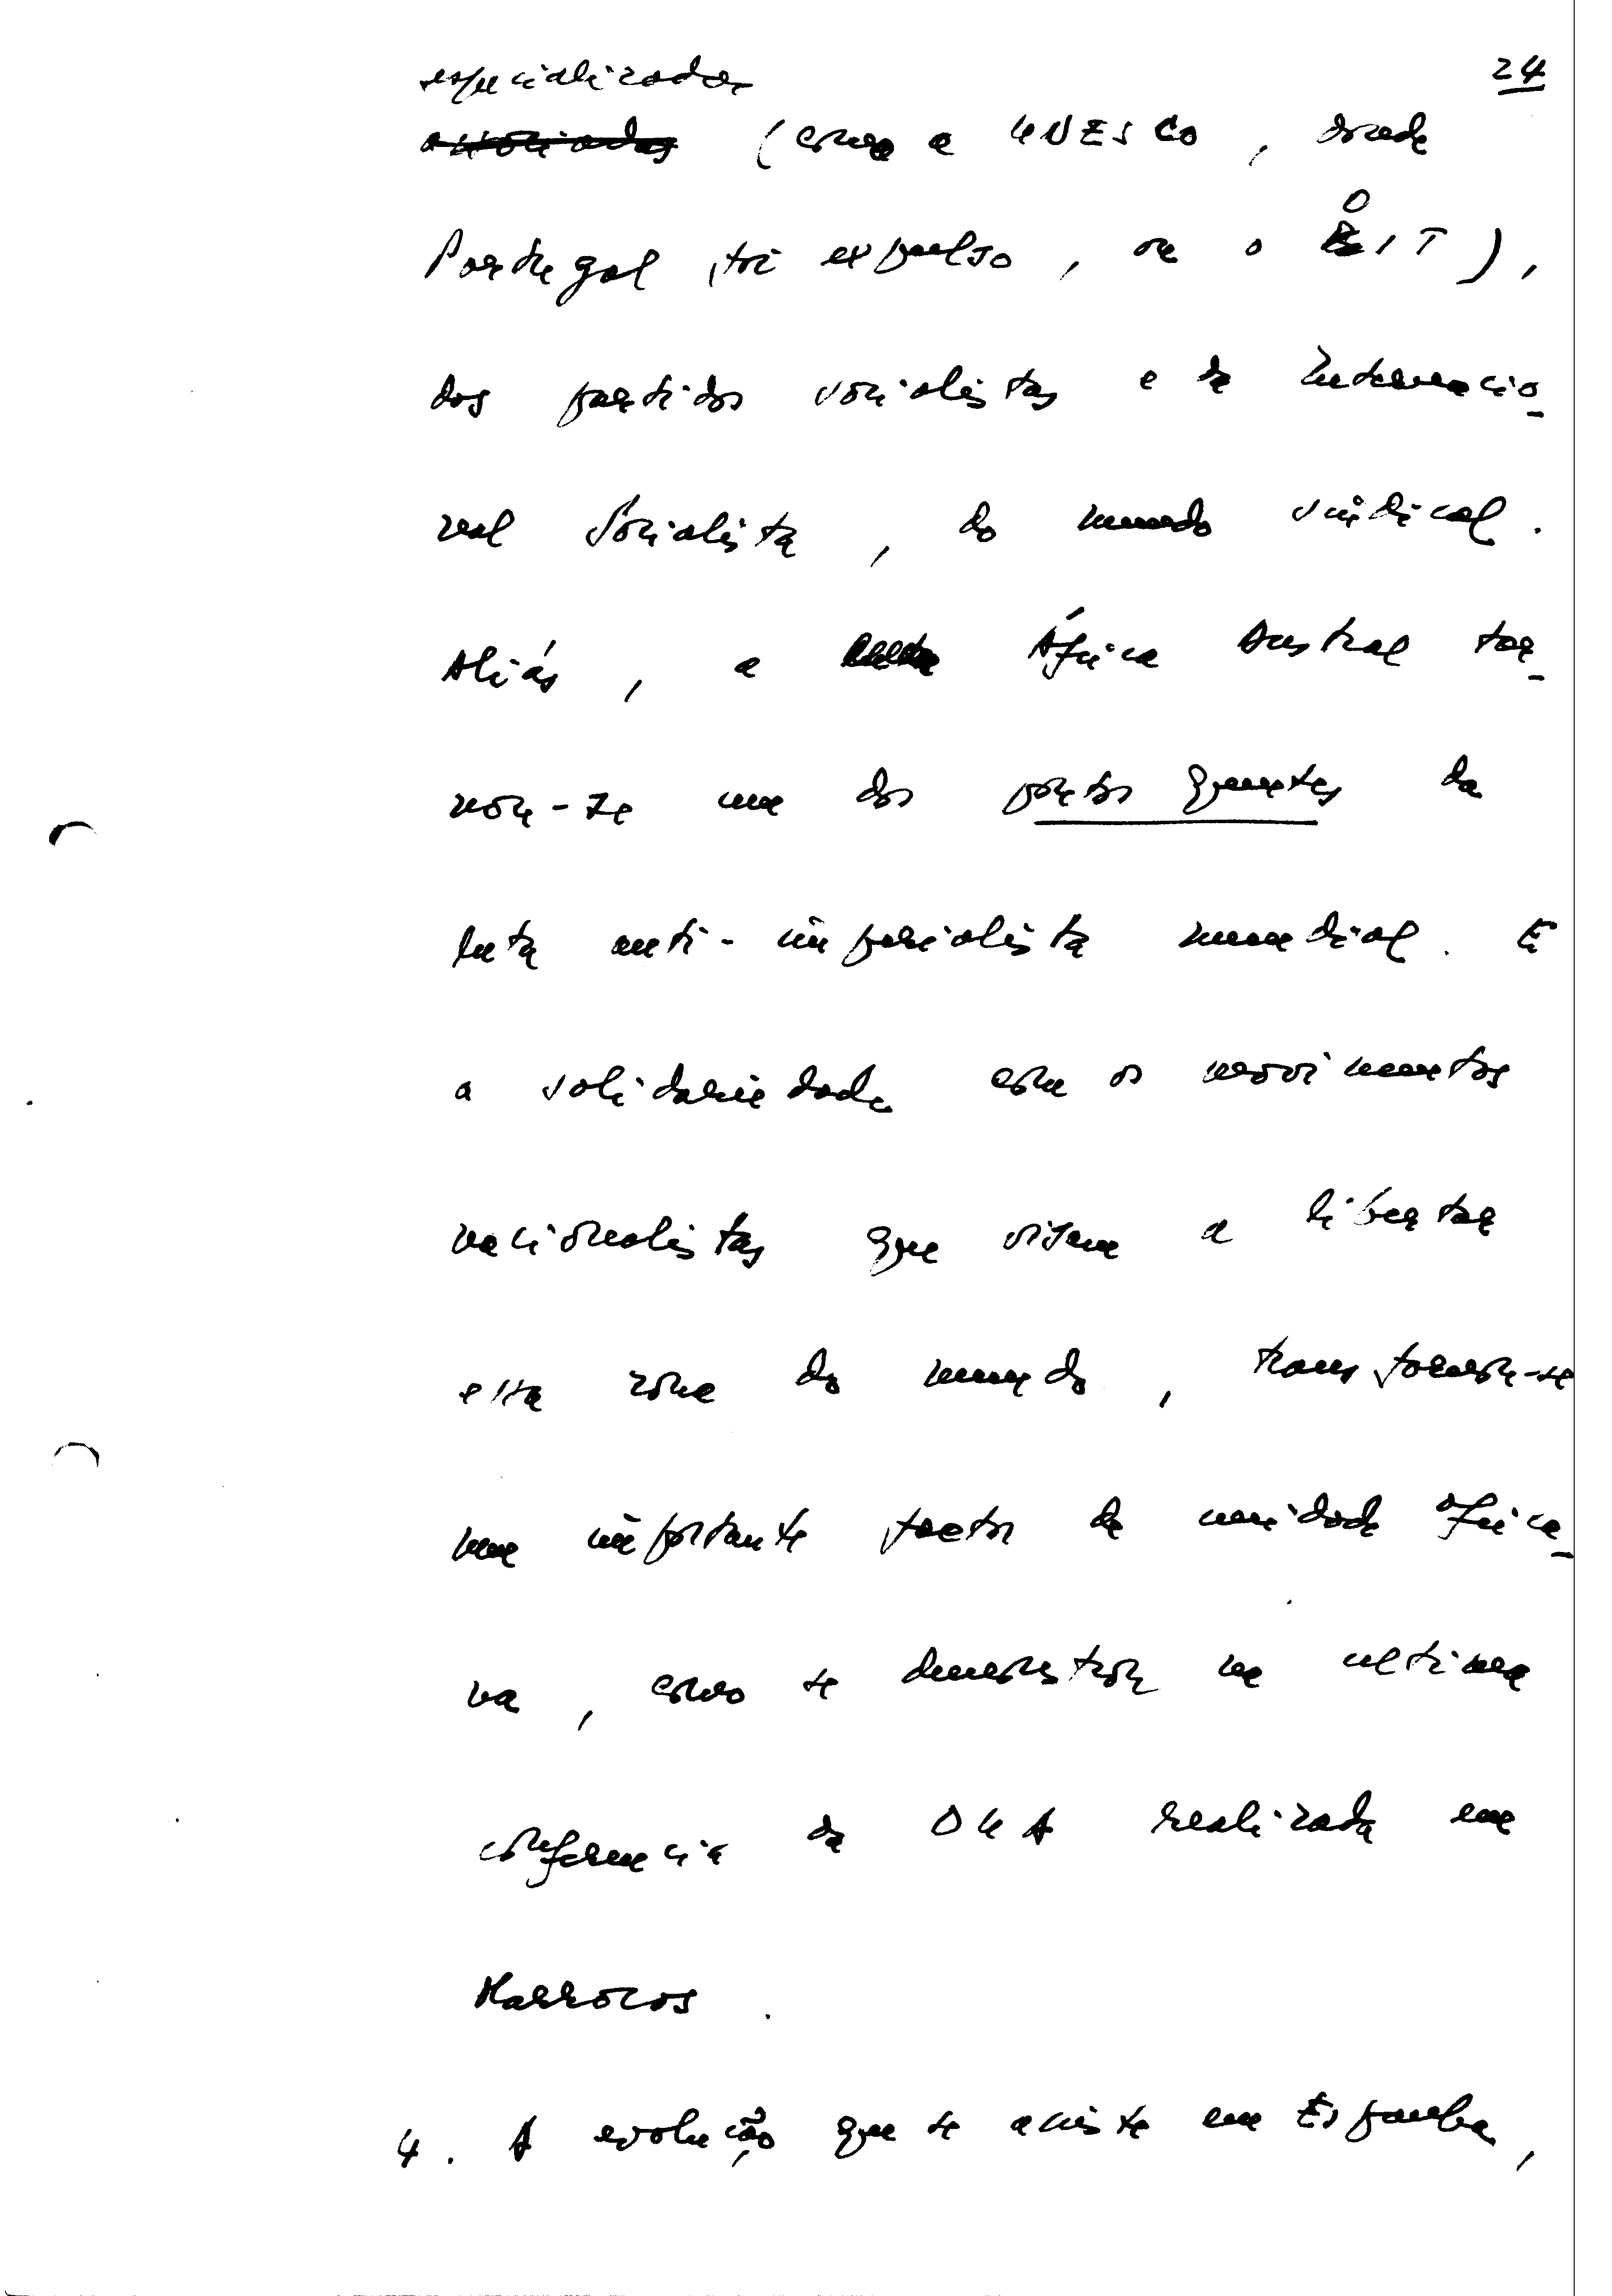 24
especializadas
associadas (como a UNESCO, donde
Portugal foi expulso, ou o OIT),
dos partidos socialistas e da Internacio-
nal Socialista, do mundo sindical.
Aliás, a África Austral tor-
nou-se um dos pontos quentes da
luta anti-imperialista mundial. E
a solidariedade com os movimentos
nacionalistas que visam a libertar
essa zona do mundo, transformou-se
num importante factor de unidade africa-
na, como se demonstrou na ultima
conferencia da OUA realizada em
Marrocos.
4. A evolução que se assiste em Espanha,